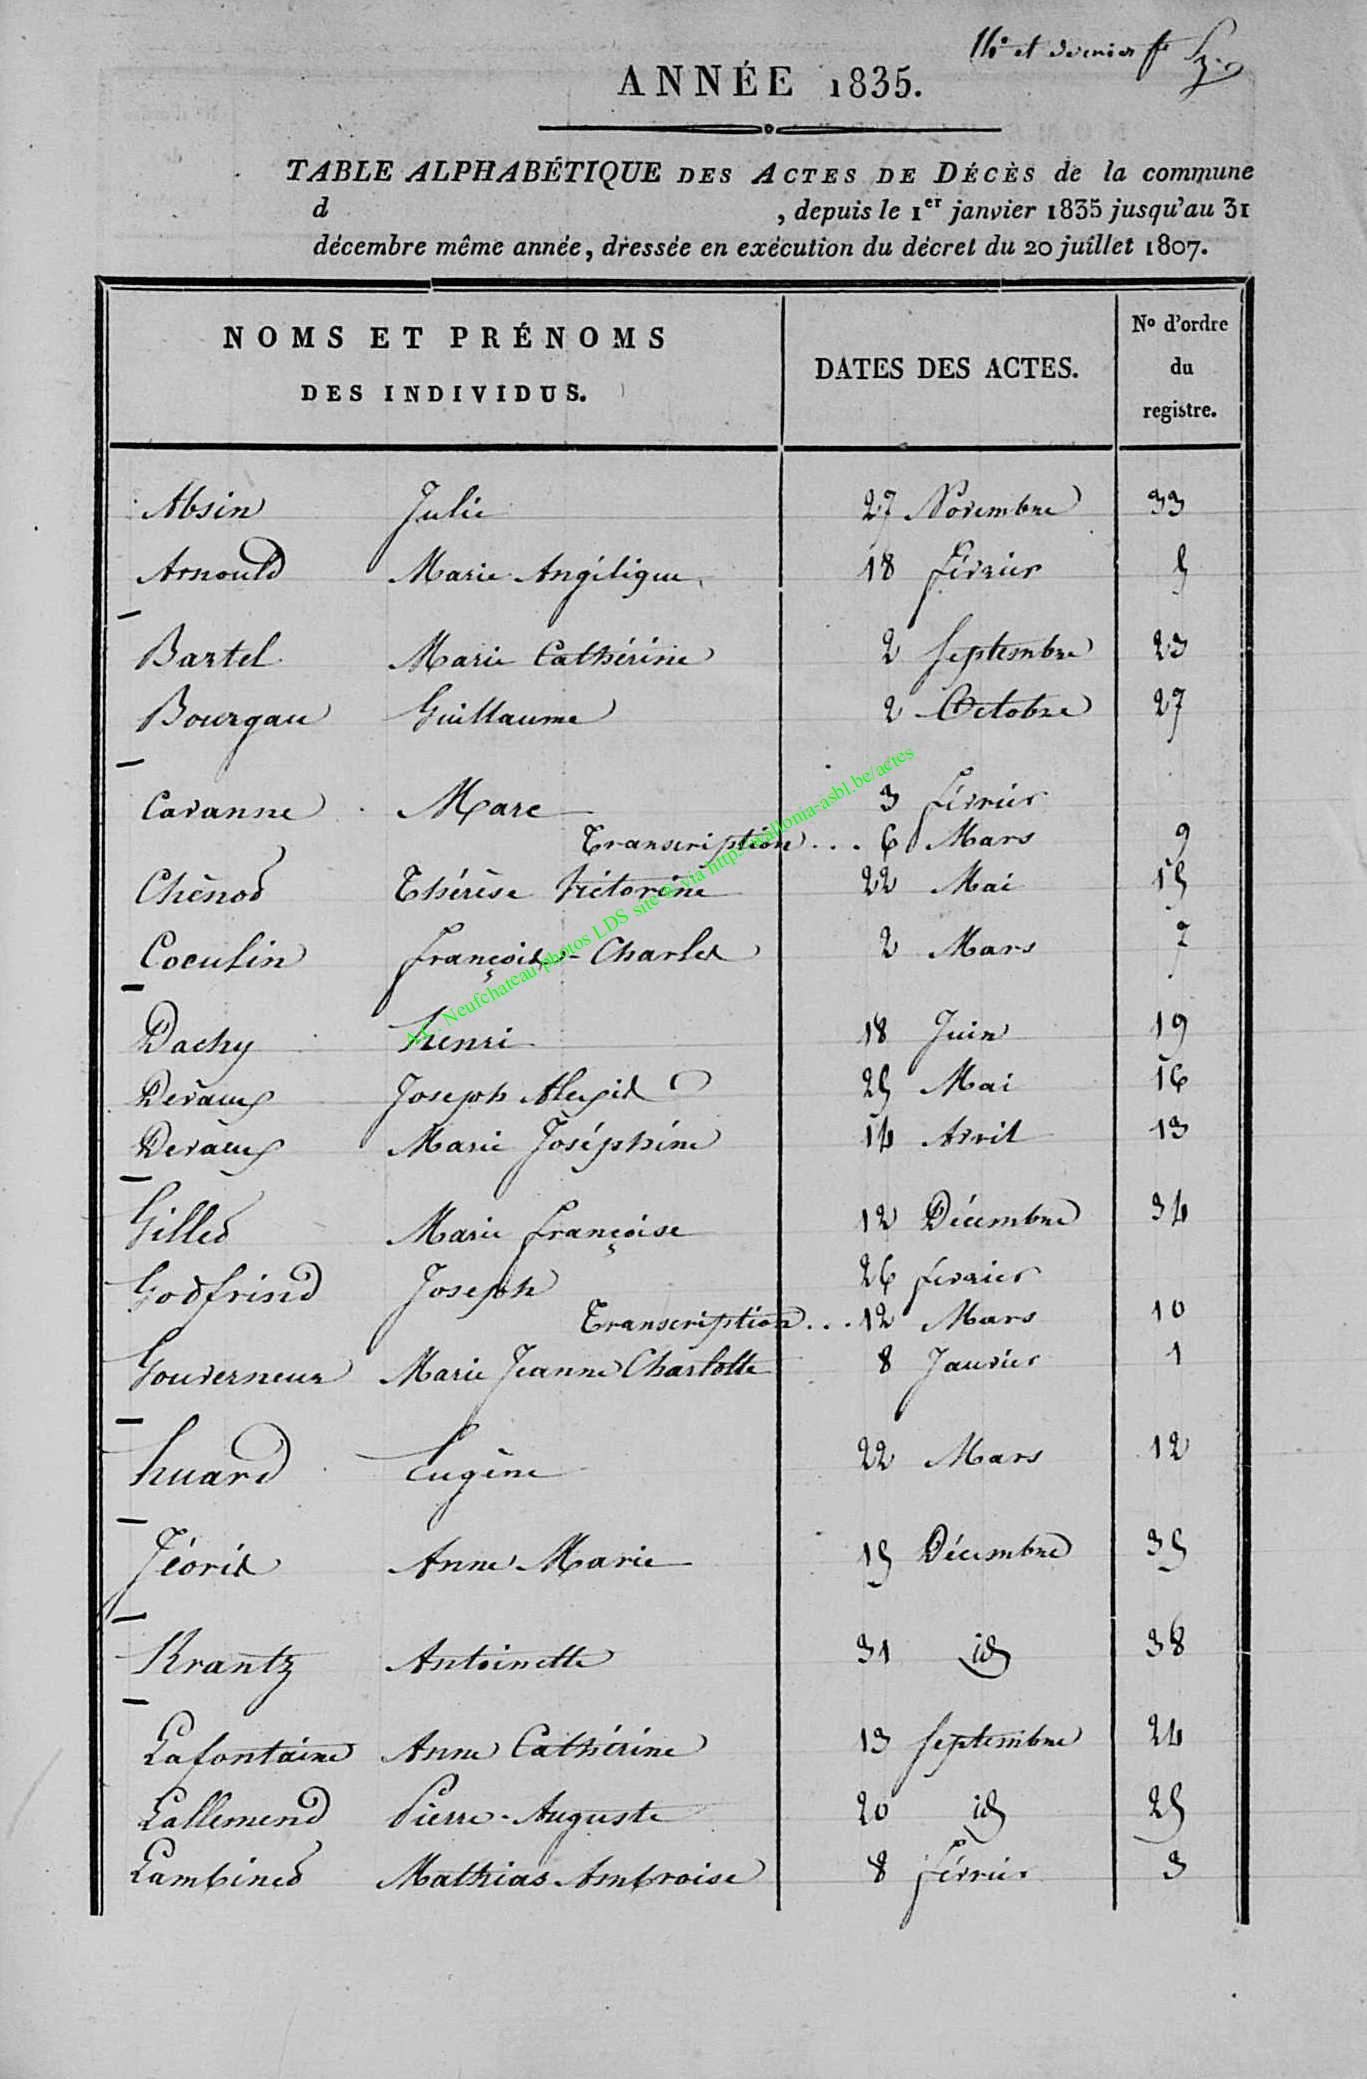 14e et dernier fe
ANNÉE 1835.
TABLE ALPHABÉTIQUE DES ACTES DE DÉCÈS de la commune
d , depuis le 1er janvier 1835 jusqu'au 31
décembre même année, dressée en exécution du décret du 20 juillet 1807.
NOMS ET PRÉNOMS DES INDIVIDUS. DATES DES ACTES. No d'ordre du registre.
Absin Julie 27 Novembre 33
Arnould Marie Angélique 18 février 5
Bartel Marie Cathérine 2 Septembre 23
Bourgau Guillaume 2 Octobre 27
Cavanne Marc 3 février
Transcription ... 6 Mars 9
Chênod Thérèse Victorine 22 Mai 15
Coculin françois-Charles 2 Mars 7
Dachy henri 18 Juin 19
Devaux Joseph Alexis 25 Mai 16
Devaux Marie Joséphine 14 Avril 13
Gilles Marie françoise 12 Décembre 34
Godfrind Joseph 26 fevrier
Transcription ... 12 Mars 10
Gouverneur Marie Jeanne Charlotte 8 Janvier 1
huard Eugène 22 Mars 12
Jéoris Anne Marie 15 Décembre 35
Krantz Antoinette 31 id 38
Lafontaine Anne Cathérine 13 Septembre 24
Lallemend Pierre-Auguste 20 id 25
Lambined Mathias Ambroise 8 février 3
A.C. Neufchateau photos LDS site © via http://wallonia-asbl.be/actes